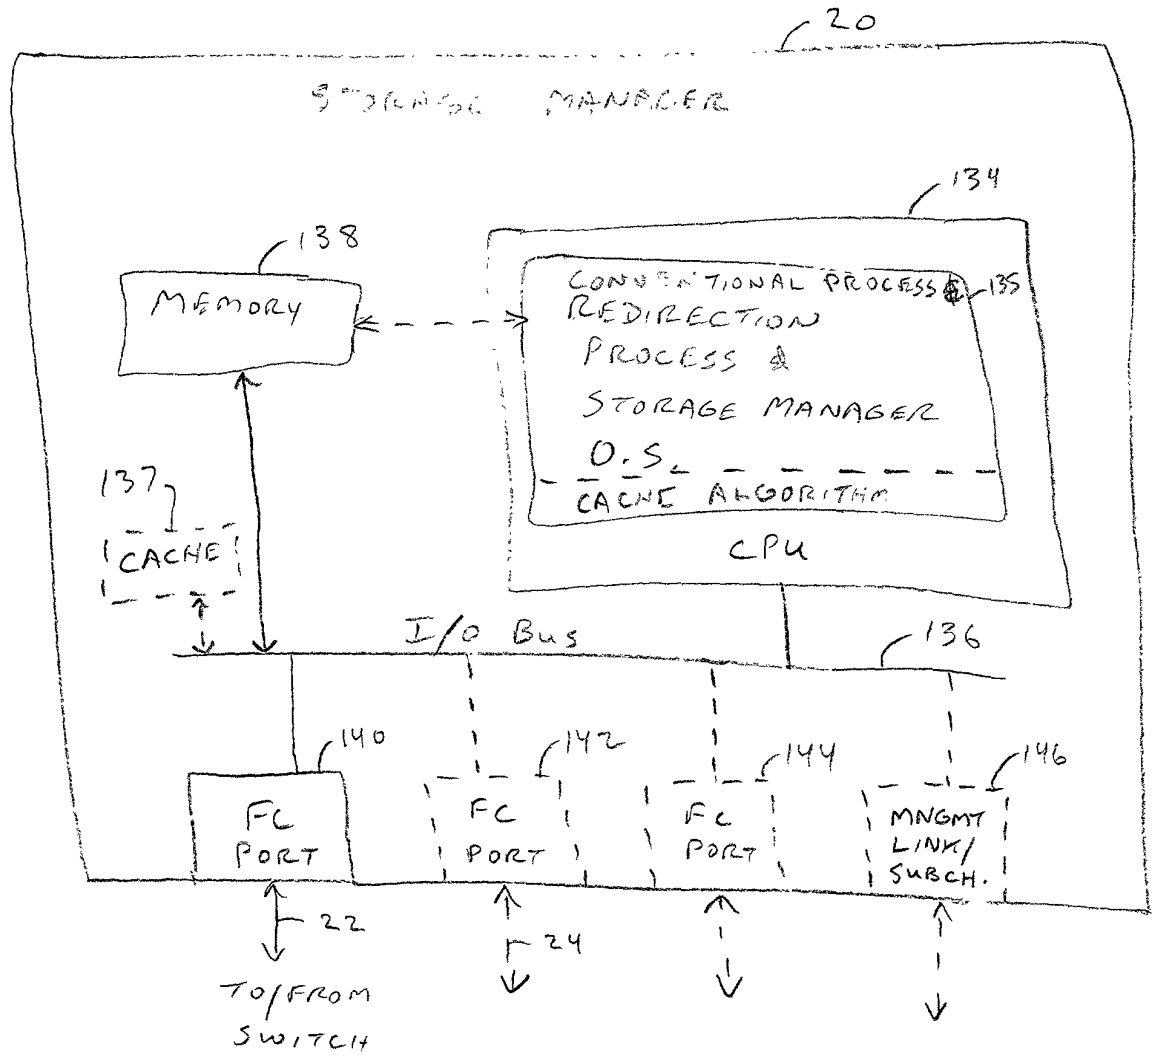 20
STORAGE MANAGER
134
138
MEMORY
CONVENTIONAL PROCESS &
135
REDIRECTION
PROCESS &
STORAGE MANAGER
O.S.
CACHE ALGORITHM
CPU
137
CACHE
I/O Bus
136
140
142
144
146
FC
PORT
FC
PORT
FC
PORT
MNGMT
LINK/
SUBCH.
22
24
TO/FROM
SWITCH